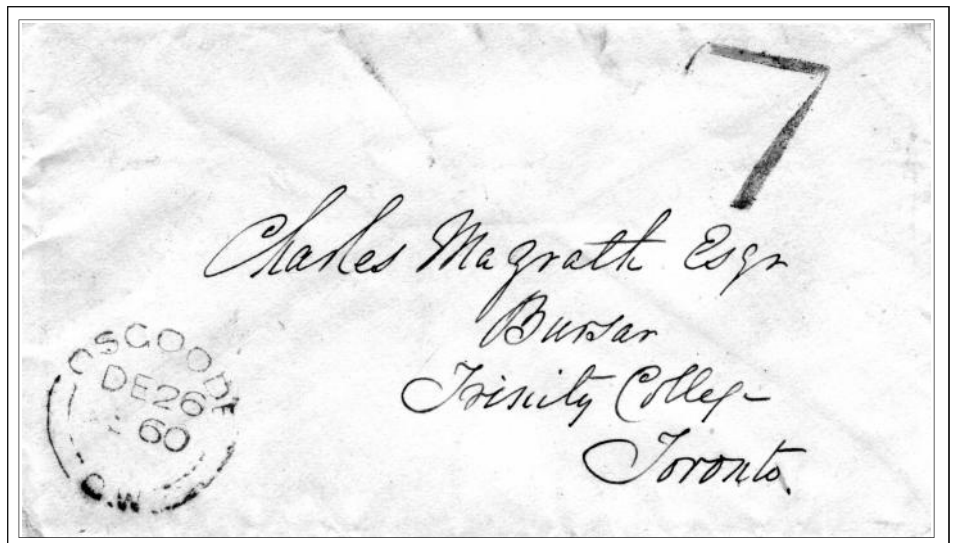 7
Charles Magrath Esqr
Bursar
Trinity College
Toronto
OSGOODE
DE 26
60
C.W